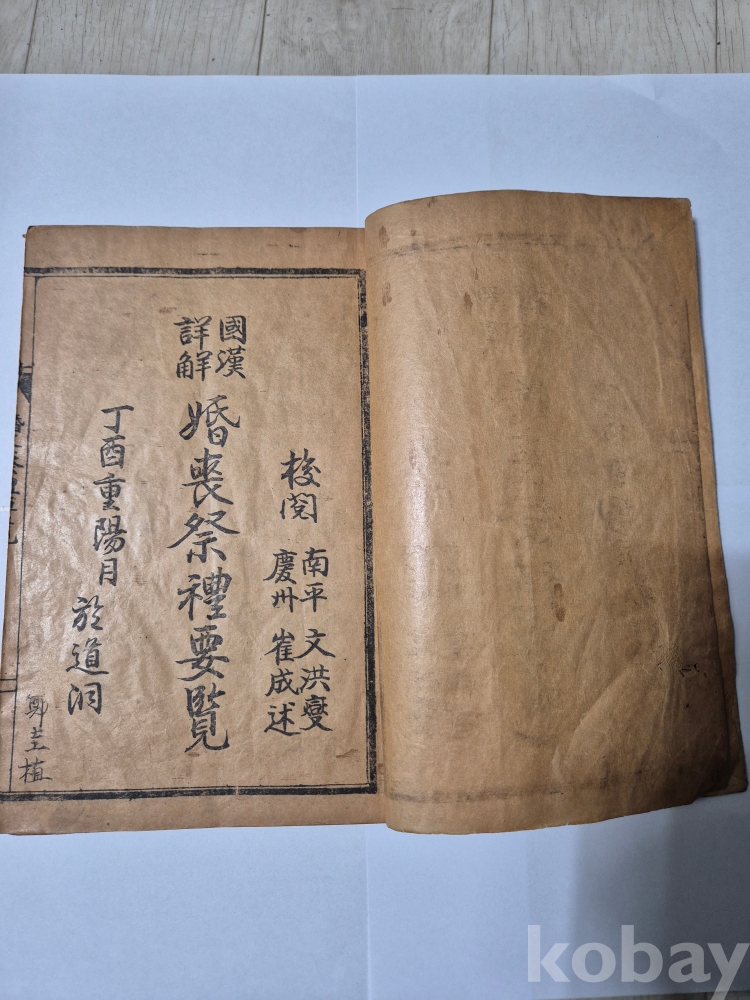 校閱 南平 文洪燮
慶州 崔成述
國漢
詳解
婚喪祭禮要覽
丁酉重陽月 於道洞
鄭圭植
kobay